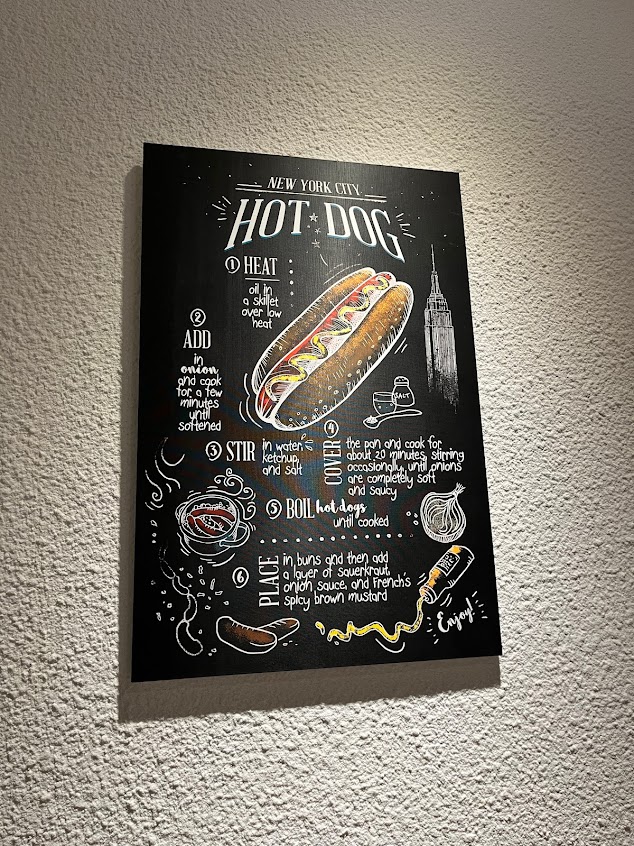 NEW YORK CITY
HOT DOG
1 HEAT
oil in
a skillet
over low
heat
2
ADD
in
onion
and cook
for a few
minutes
until
softened
3 STIR
in water,
ketchup,
and salt
SALT
4
COVER
the pan and cook for
about 20 minutes, stirring
occasionally, until onions
are completely soft
and saucy
5 BOIL hot dogs
until cooked
6
PLACE
in buns and then add
a layer of sauerkraut,
onion sauce, and French's
spicy brown mustard
Enjoy!